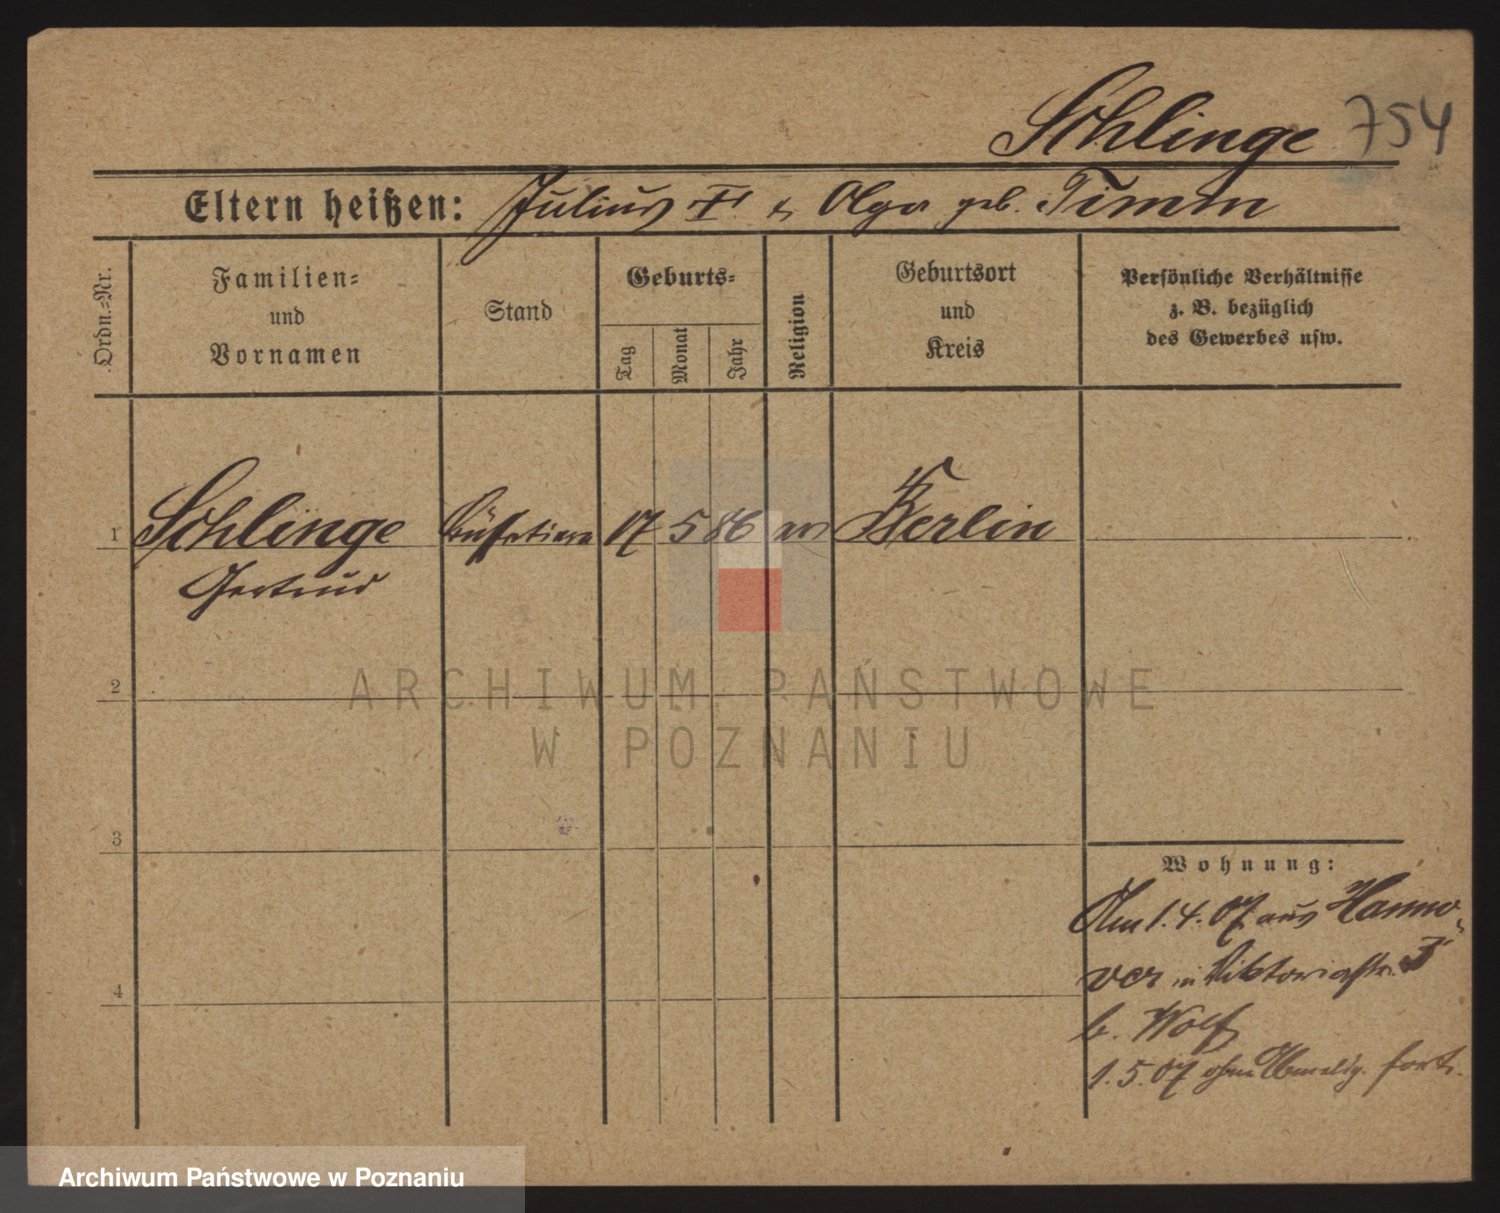 Schlinge 754
Eltern heißen: Julius † & Olga geb. Timm
Ordn.-Nr.
Familien-
und
Vornamen
Stand
Geburts-
Tag
Monat
Jahr
Religion
Geburtsort
und
Kreis
Persönliche Verhältnisse
z. B. bezüglich
des Gewerbes usw.
1 Schlinge Büfetiere 17 5 86 ev Berlin
Gertrud
2
ARCHIWUM PAŃSTWOWE
W POZNANIU
3
Wohnung:
Am 1.4.07 aus Hanno-
ver in Viktoriastr. 5
b. Wolf
4
1.5.07 ohne Abmeldg. fort.
Archiwum Państwowe w Poznaniu